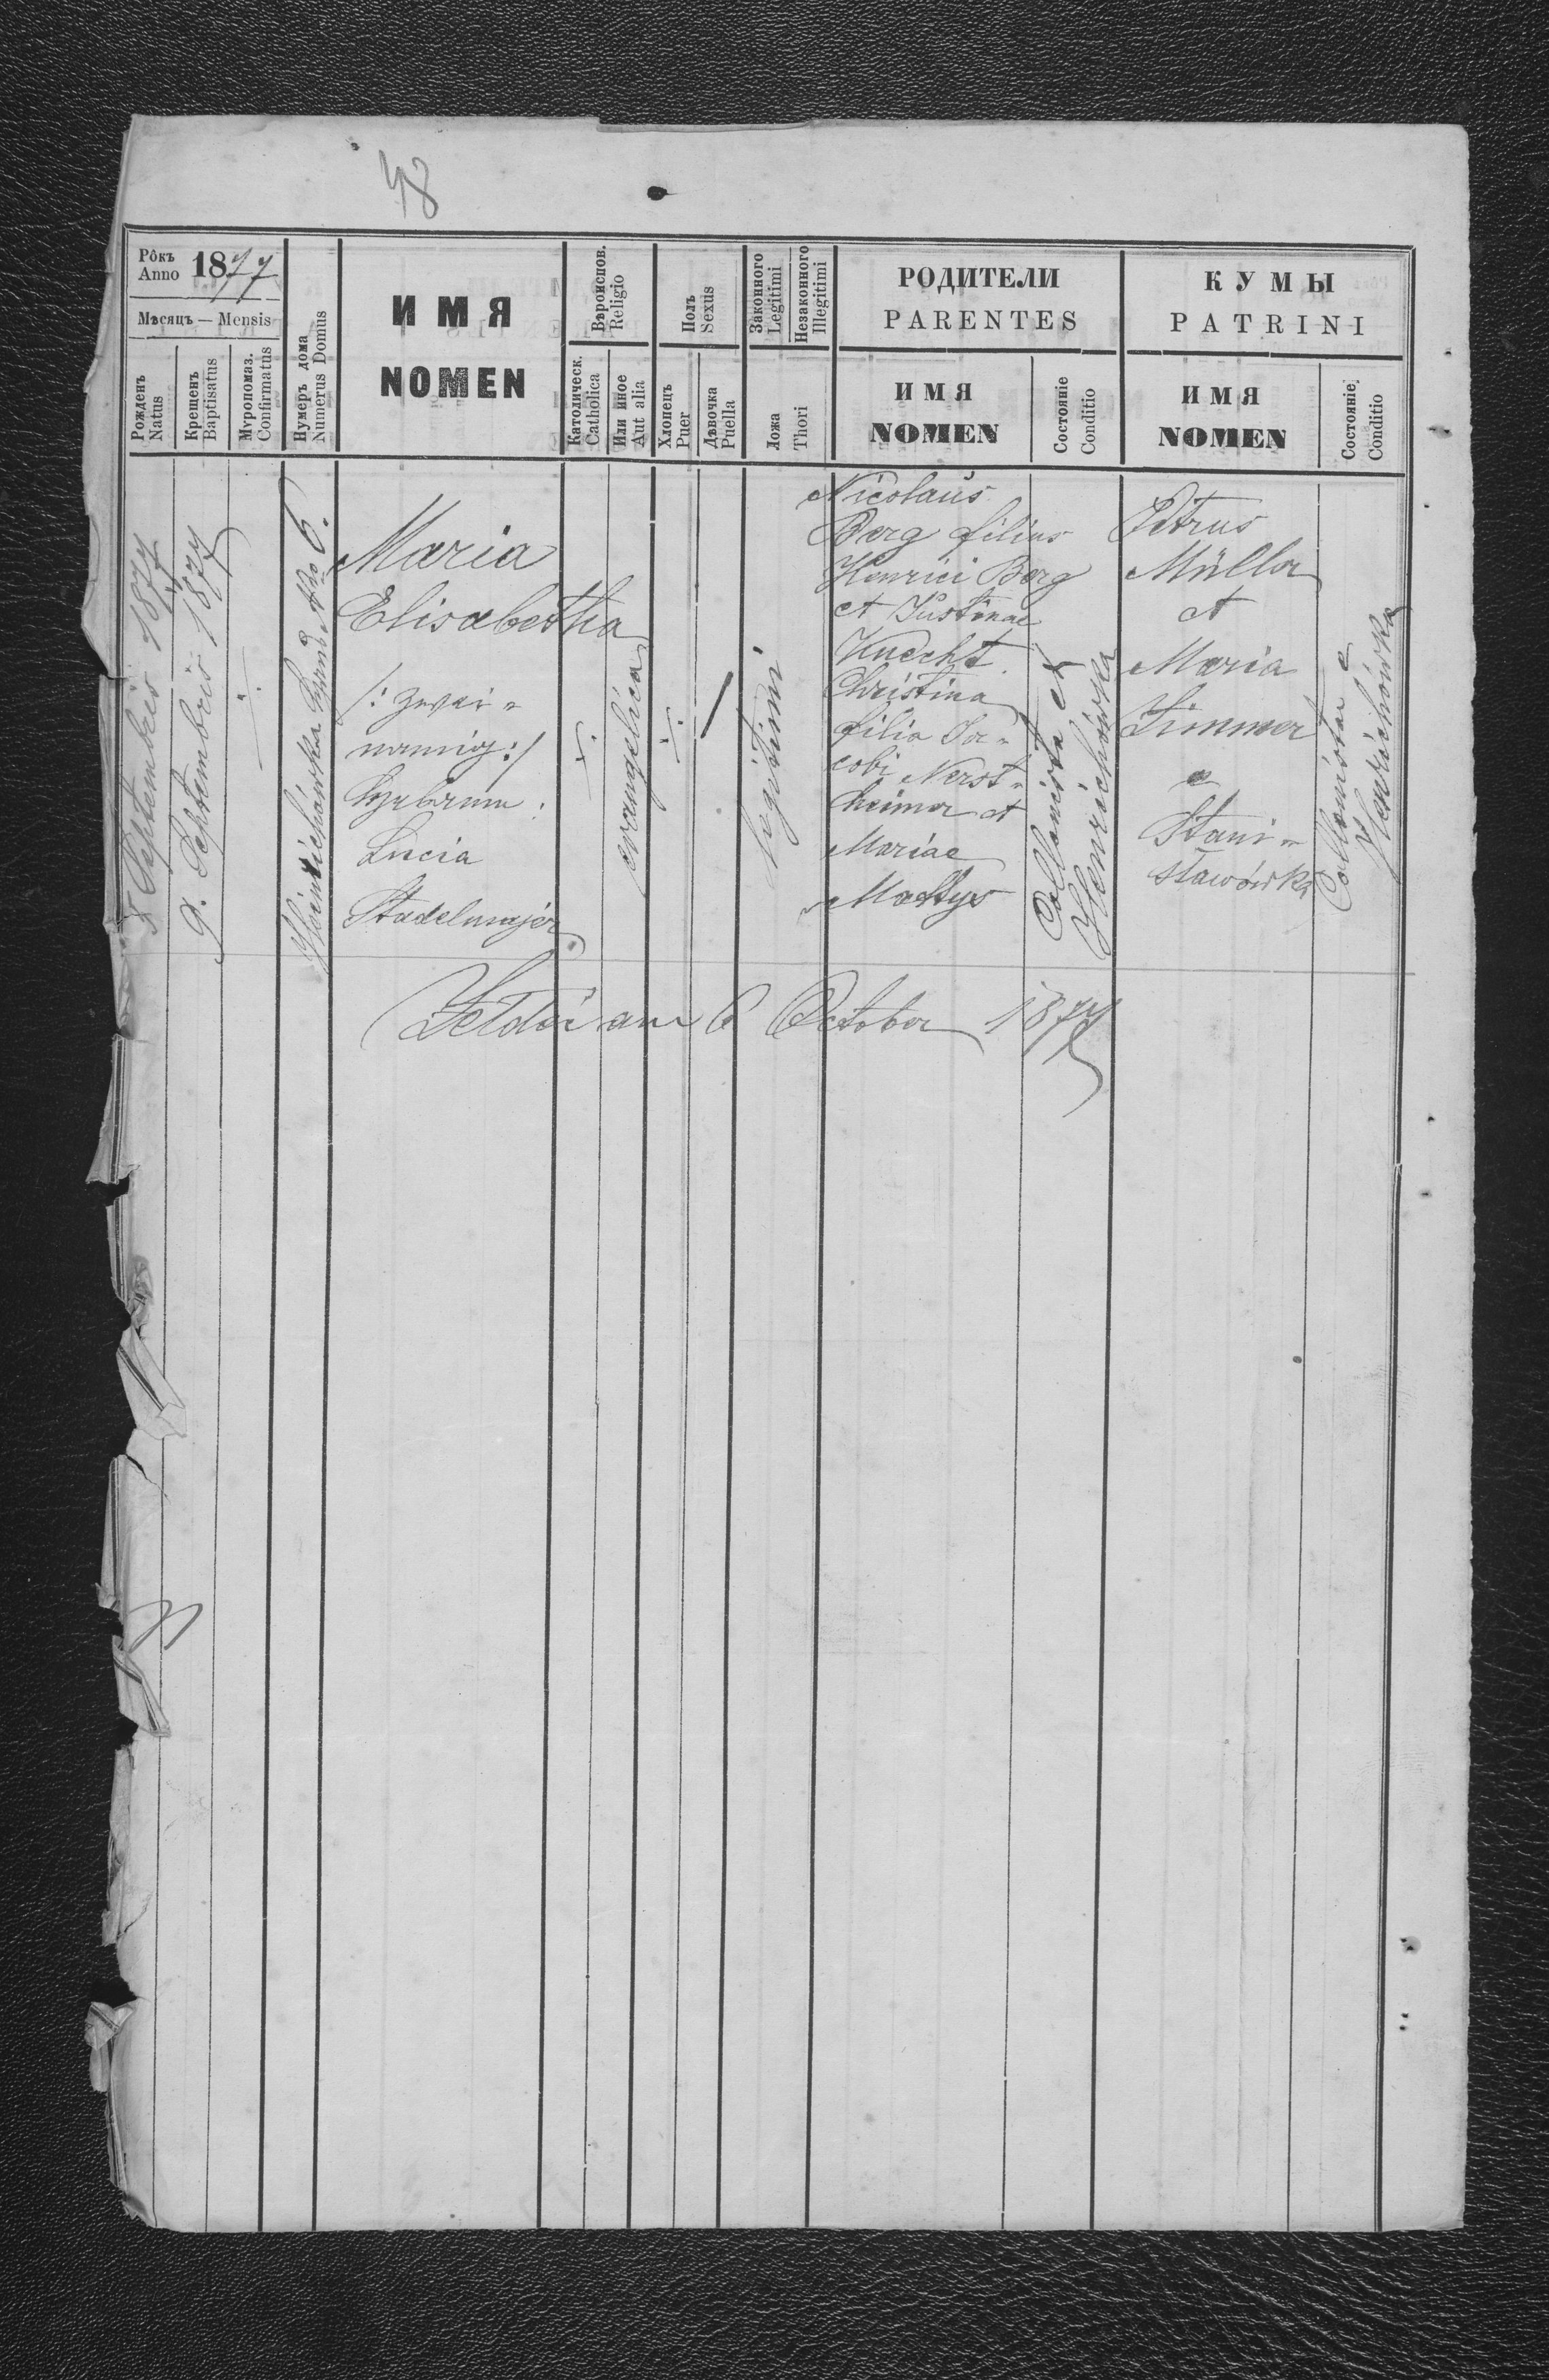 48
Рôкъ
Anno 1877
Мѣсяцъ — Mensis
Рожденъ
Natus
Крещенъ
Baptisatus
Мѵропомаз.
Confirmatus
Нумеръ дома
Numerus Domus
ИМЯ
NOMEN
Вѣроиспов.
Religio
Католическ.
Catholica
Или иное
Aut alia
Полъ
Sexus
Хлопецъ
Puer
Дѣвочка
Puella
Законного
Legitimi
Незаконного
Illegitimi
Ложа
Thori
РОДИТЕЛИ
PARENTES
ИМЯ
NOMEN
Состояніе
Conditio
КУМЫ
PATRINI
ИМЯ
NOMEN
Состояніе
Conditio
8 Septembris 1877
9. Septembris 1877
Heinrichówka Nro 6.
Maria
Elisabetha
Lucia
Stadelmajer
evangelica
legitimi
Nicolaus
Berg filius
Henrici Berg
et Justinae
Knecht
Christina
filia Ja-
cobi Nerst-
heimer et
Mariae
Mattys
Collonistae ex
Henrichówka
Petrus
Müller
et
Maria
Zimmer
e
Stani-
sławówka
Collonistae e
Henrichówka
am 6 October 1877